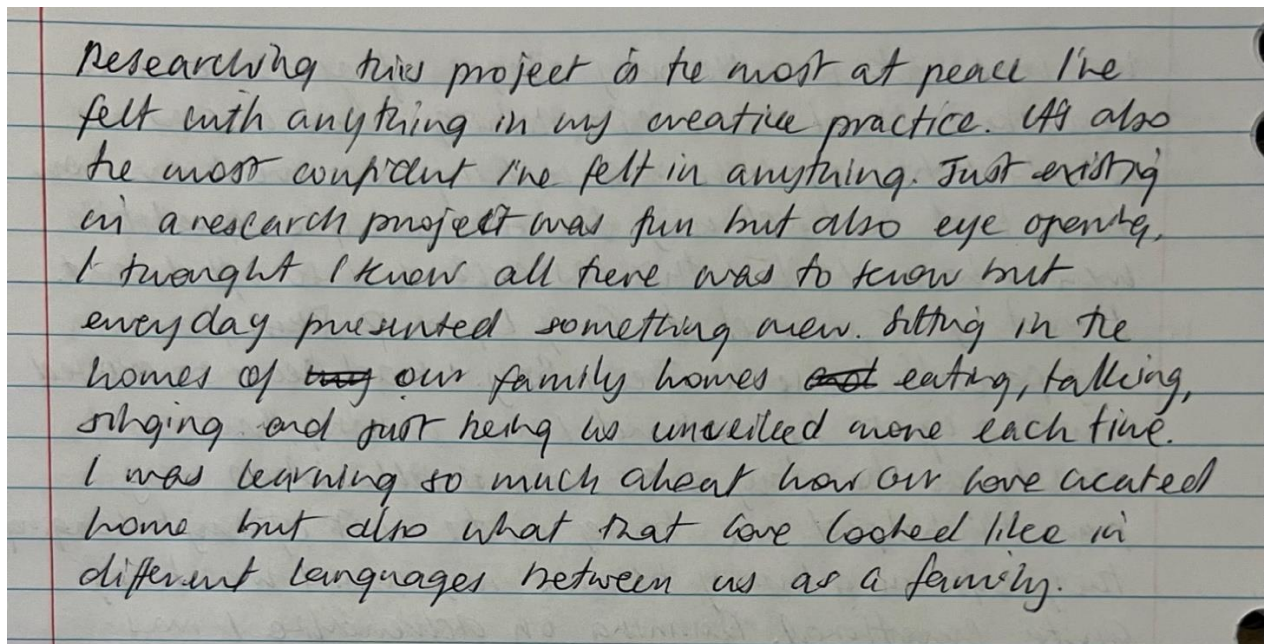 Researching this project is the most at peace I've
felt with anything in my creative practice. It's also
the most confident I've felt in anything. Just existing
in a research project was fun but also eye opening,
I thought I knew all there was to know but
everyday presented something new. Sitting in the
homes of our family homes eating, talking,
singing and just being us unveiled more each time.
I was learning so much about how our love created
home but also what that love looked like in
different languages between us as a family.